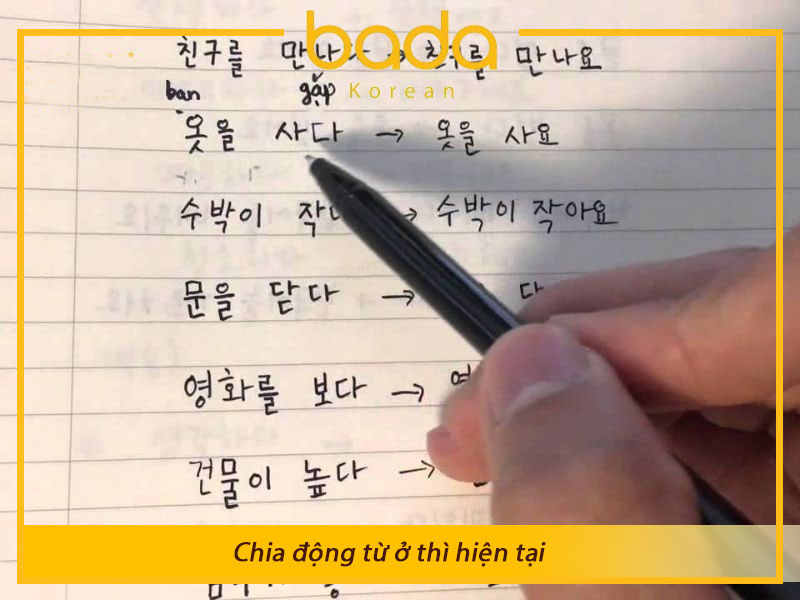 bada
Korean
친구를 만나 → 친구를 만나요
bạn gặp
옷을 사다 → 옷을 사요
수박이 작 → 수박이 작아요
문을 닫다 →
영화를 보다 → 영
건물이 높다 →
Chia động từ ở thì hiện tại